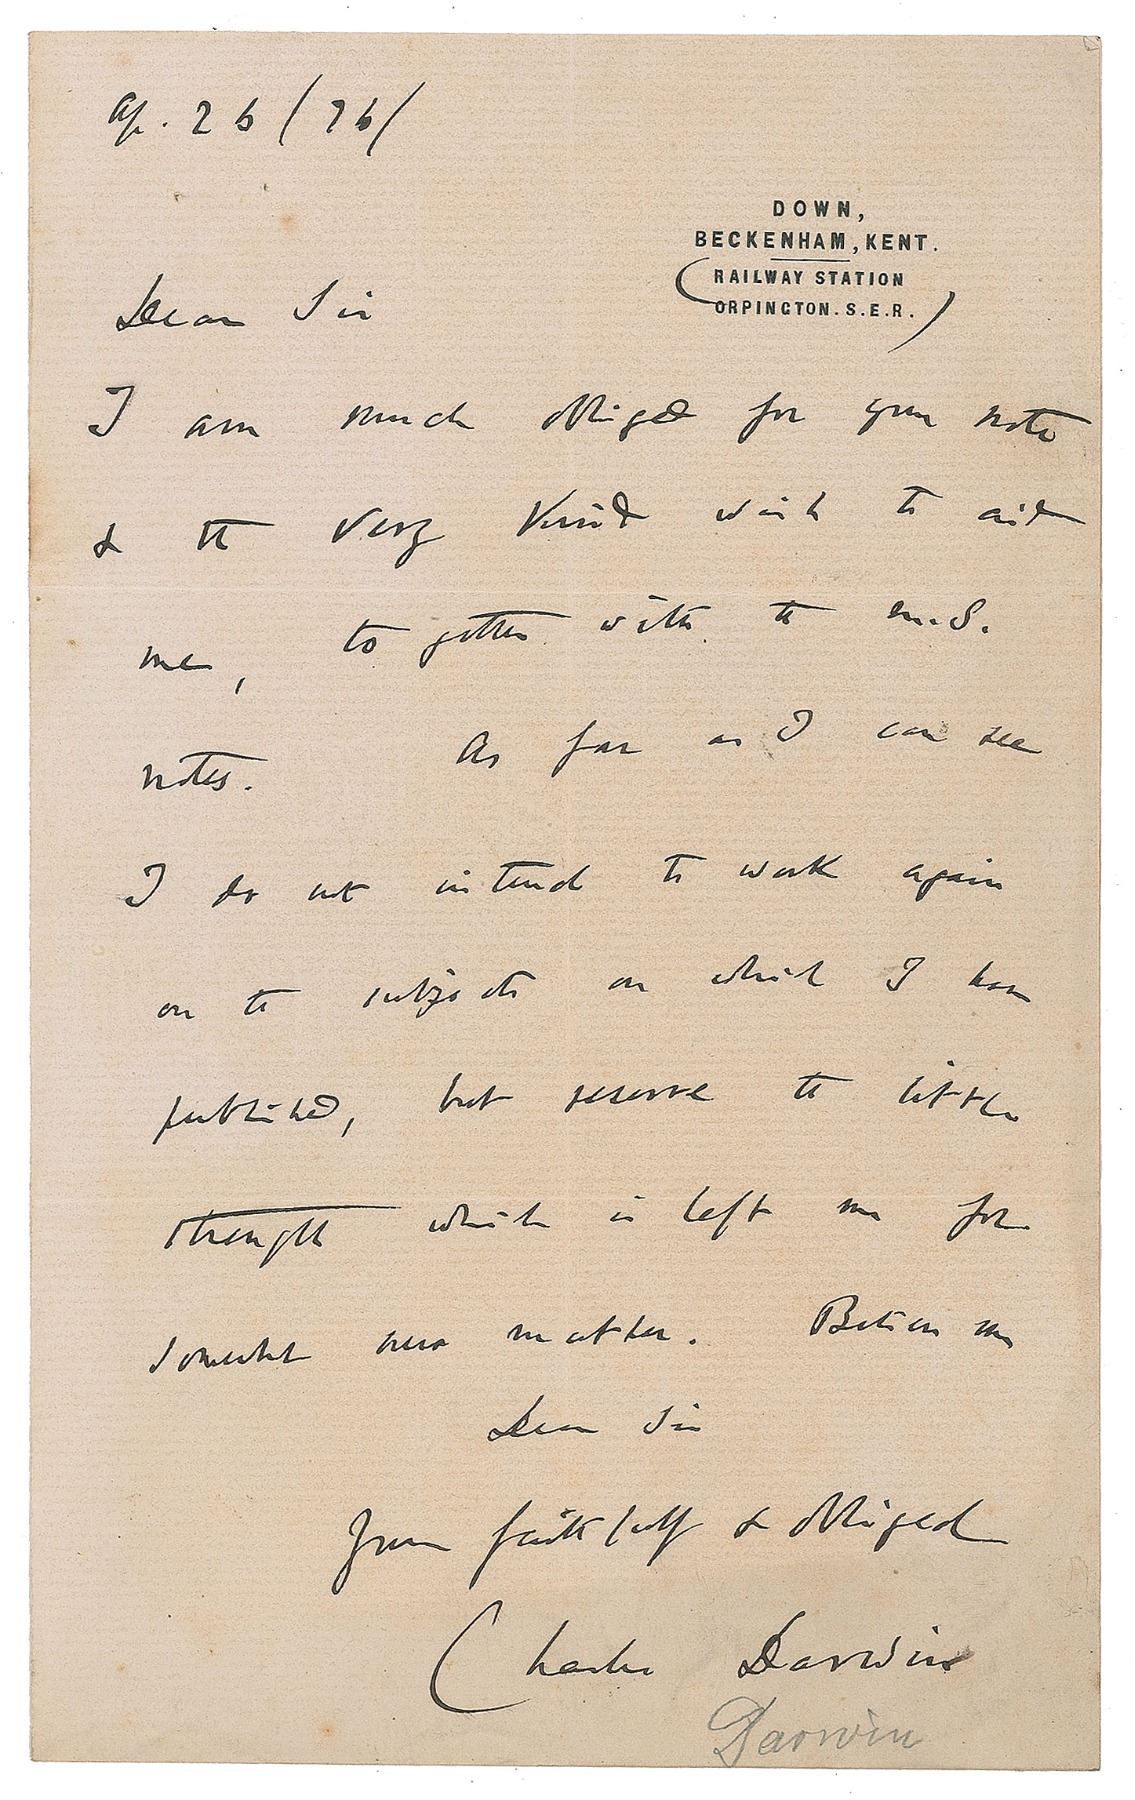 Ap. 26/76/
DOWN,
BECKENHAM, KENT.
(RAILWAY STATION
ORPINGTON. S.E.R.)
Dear Sir
I am much obliged for your note
& the very kind wish to aid
me, together with the M.S.
notes. As far as I can see
I do not intend to work again
on the subjects on which I have
published, but reserve the little
strength which is left me for
somewhat new matter. Believe me
Dear Sir
Yours faithfully & obliged
Charles Darwin
Darwin